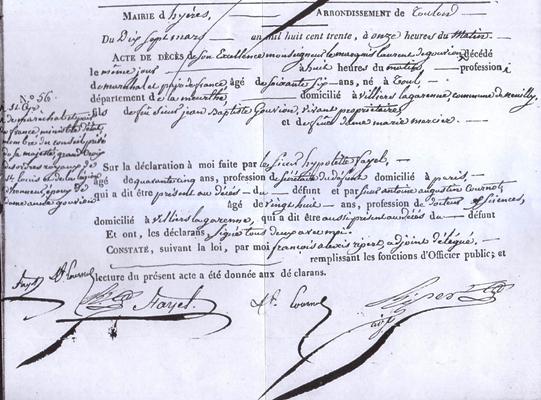 MAIRIE d'hyères, ARRONDISSEMENT de Toulon
Du Dix Sept mars an mil huit cent trente, à onze heures du Matin
ACTE DE DÉCÈS de Son Excellence monseigneur le marquis laurent de gouvion décédé
le même jour à huit heures du matin profession
de maréchal et pair de france, âgé de soixante six ans, né à Toul,
département de la meurthe domicilié à villiers lagarenne, commune de Neuilly,
fils de feu Sieur jean Baptiste Gouvion, vivant propriétaire,
et de feue dame marie mercier.
N.º 56.
St Cyr,
maréchal et pair
de france, ministre d'état,
membre du conseil privé
de sa majesté, grand Croix
des ordres royaux de
St Louis et de la légion
d'honneur, époux de
dame anne gouvion
Sur la déclaration à moi faite par le Sieur hypolite fayel,
âgé de quarante cinq ans, profession de Secrétaire du défunt domicilié à paris,
qui a dit être présent au décès du défunt et par Sieur antoine augustin Cournot,
âgé de vingt huit ans, profession de docteur ès Sciences,
domicilié à villiers lagarenne, qui a dit être aussi présent au décès du défunt
Et ont, les déclarans, signé tous deux avec moi.
CONSTATÉ, suivant la loi, par moi françois alexis ripert, adjoint délégué,
remplissant les fonctions d'Officier public; et
lecture du présent acte a été donnée aux déclarans.
Fayel Cournot
Fayel Cournot Ripert